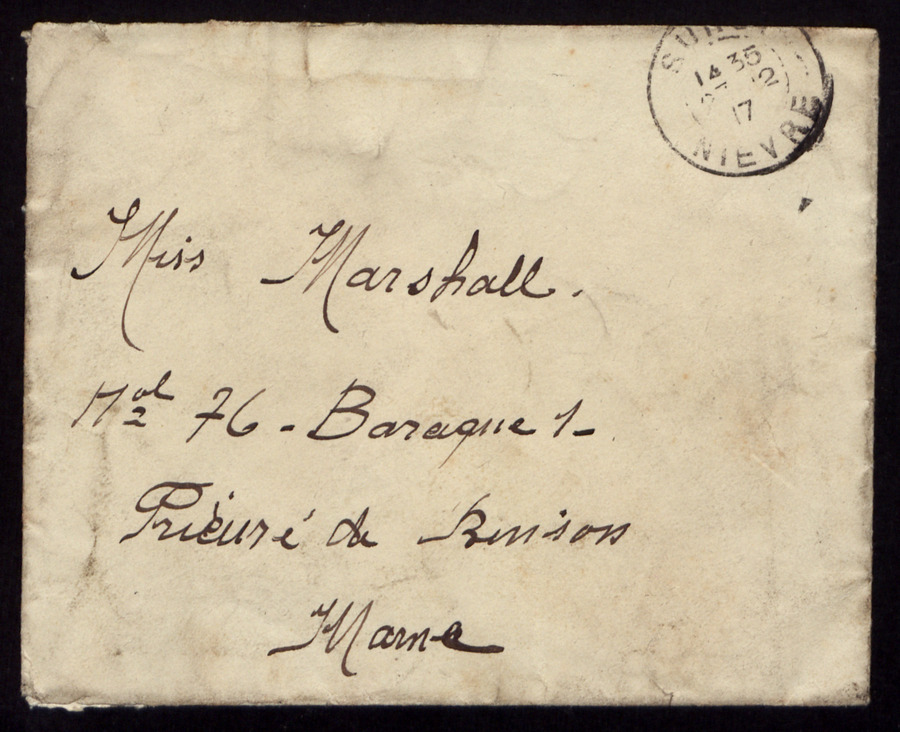 14 35
12
17
NIEVRE
Miss Marshall.
76 - Baraque 1 -
Prieuré de Binson
Marne